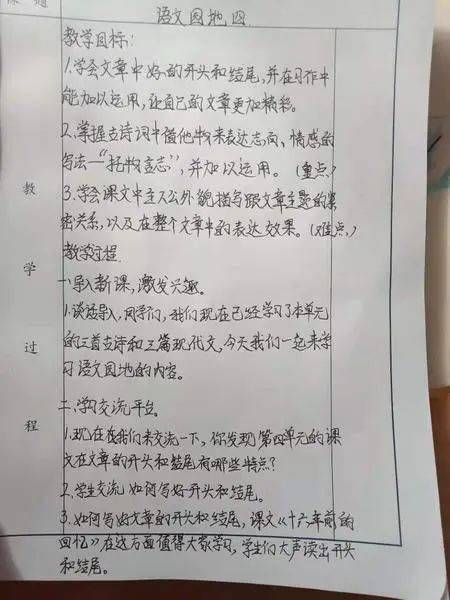 课题
语文园地四
教学目标:
1.学会文章中好的开头和结尾,并在习作中
能加以运用,让自己的文章更加精彩。
2.掌握古诗词中借他物来表达志向、情感的
写法—“托物言志”,并加以运用。(重点)
教
3.学会课文中主人公外貌描写跟文章主题的紧
密关系,以及在整个文章中的表达效果。(难点)
教学过程
学
一.导入新课,激发兴趣。
1.谈话导入,同学们,我们现在已经学习了本单元
过
的三首古诗和三篇现代文,今天我们一起来学
习语文园地的内容。
二.学习交流平台。
程
1.现在在我们来交流一下,你发现第四单元的课
文在文章的开头和结尾有哪些特点?
2.学生交流如何写好开头和结尾。
3.如何写好文章的开头和结尾,课文《十六年前的
回忆》在这方面值得大家学习,学生们大声读出开头
和结尾。